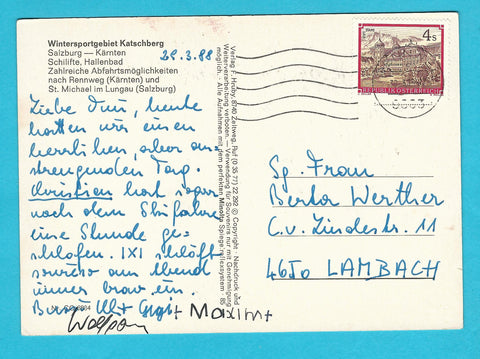 Wintersportgebiet Katschberg
Salzburg — Kärnten
Schilifte, Hallenbad
Zahlreiche Abfahrtsmöglichkeiten
nach Rennweg (Kärnten) und
St. Michael im Lungau (Salzburg)
29.3.88
Liebe Omi, heute
hatten wir einen
herrlichen, aber an-
strengenden Tag.
Christian hat sogar
nach dem Skifahren
eine Stunde ge-
schlafen. IXI schläft
sowieso am Abend
immer brav ein.
Wolfgang + Maximi +
Verlag F. Huber, 8740 Zeltweg, Ruf (0 35 77) 22 292 © Copyright · Nachdruck und
Weiterverarbeitung verboten. — Verwendung für Souvenirs nur mit Genehmigung
möglich. · Alle Aufnahmen mit dem perfekten Minolta Spiegelreflexsystem · 85
4 S
REPUBLIK ÖSTERREICH
Sg. Frau
Berta Werther
C.v. Lindestr. 11
4650 LAMBACH